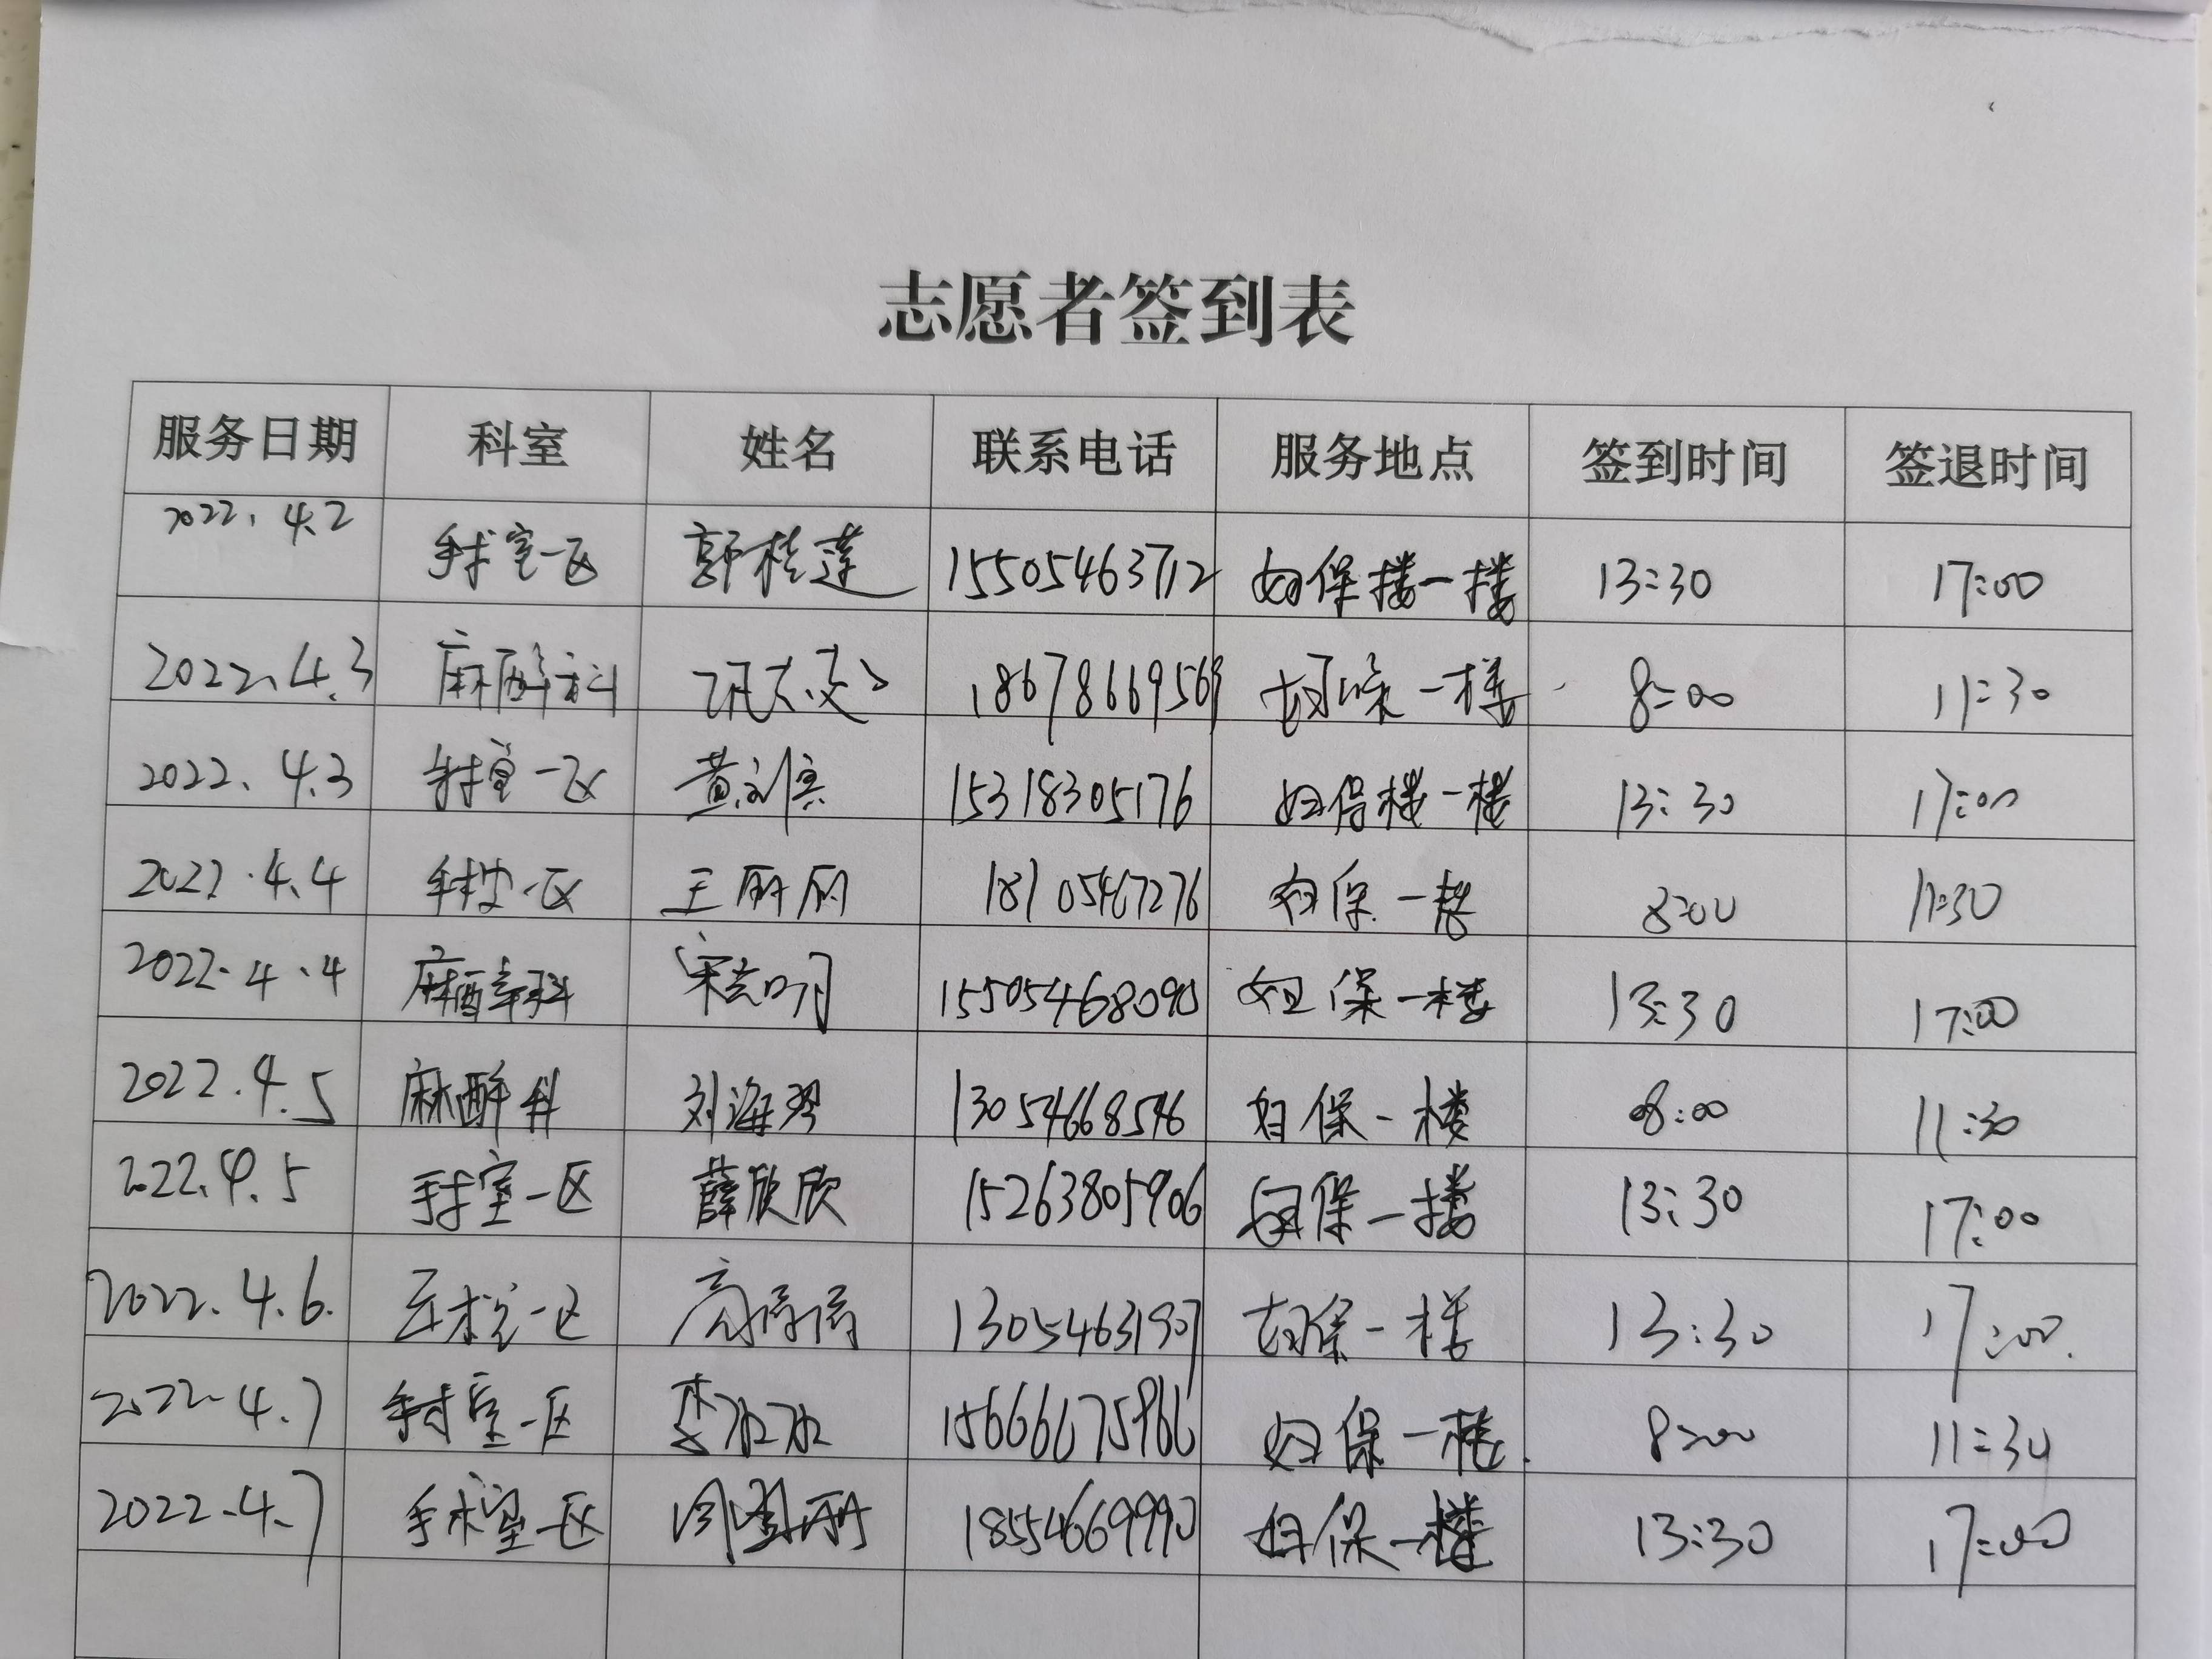 志愿者签到表
服务日期 科室 姓名 联系电话 服务地点 签到时间 签退时间
2022.4.2 手术室一区 郭桂莲 15505463712 妇保楼一楼 13:30 17:00
2022.4.3 麻醉科 18678669569 妇保一楼 8:00 11:30
2022.4.3 手术室一区 黄刘宾 15318305176 妇保楼一楼 13:30 17:00
2022.4.4 手术室一区 王丽丽 18105467276 妇保一楼 8:00 11:30
2022.4.4 麻醉科 宋志明 15505468090 妇保一楼 13:30 17:00
2022.4.5 麻醉科 刘海琴 13054668546 妇保一楼 08:00 11:30
2022.4.5 手术室一区 薛欣欣 15263805906 妇保一楼 13:30 17:00
2022.4.6. 手术室一区 高倩倩 13054631907 妇保一楼 13:30 17:00.
2022.4.7 手术室一区 李冰冰 15666675966 妇保一楼. 8:00 11:30
2022.4.7 手术室一区 18554669990 妇保一楼 13:30 17:00